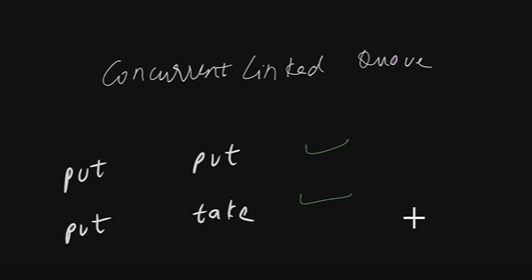 Concurrent Linked Queue
put put ✓
put take ✓